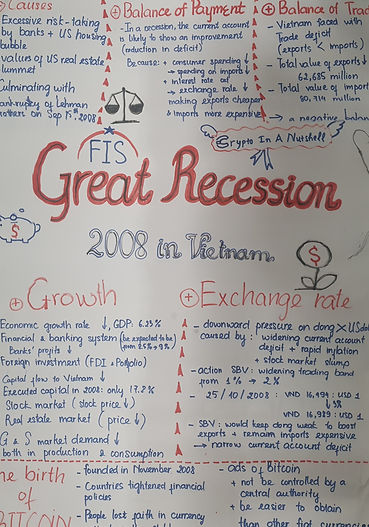 Causes
Excessive risk-taking
by banks + US housing
bubble
values of US real estate
Culminating with
bankruptcy of Lehman
Brothers on Sep 15th, 2008
+ Balance of Payment
- In a recession, the current account
is likely to show an improvement
(reduction in deficit)
Because: + consumer spending ↓
→ spending on imports ↓
+ interest rate cut
→ exchange rate ↓
making exports cheaper
& imports more expensive
+ Balance of Trad
- Vietnam faced with
Trade deficit
(exports < imports)
- Total value of exports ↓
62,685 million
- Total value of import
80,714 million
→ a negative balan
Crypto In A Nutshell
FIS
Great Recession
2008 in Vietnam
$
$
+ Growth
Economic growth rate ↓, GDP: 6.23%
Financial & banking system (be expected to be
from 25% → 9%)
Banks' profits ↓
Foreign investment (FDI & Portfolio)
Capital flow to Vietnam ↓
Executed capital in 2008: only 17.8%
Stock market (stock price ↓)
Real estate market (price ↓)
G & S market demand ↓
both in production & consumption
+ Exchange rate
- downward pressure on dong X US dol
caused by: widening current account
deficit + rapid inflation
+ stock market slump
- action SBV: widening trading band
from 1% → 2%
- 25/10/2008: VND 16,494 : USD 1
VND 16,989 : USD 1
- SBV: would keep dong weak to boost
exports + remain imports expensive
→ narrow current account deficit
The birth
of
BITCOIN
- founded in November 2008
- Countries tightened financial
policies
- People lost faith in currency
- ads of Bitcoin
+ not be controlled by a
central authority
+ be easier to obtain
than other fiat currencies